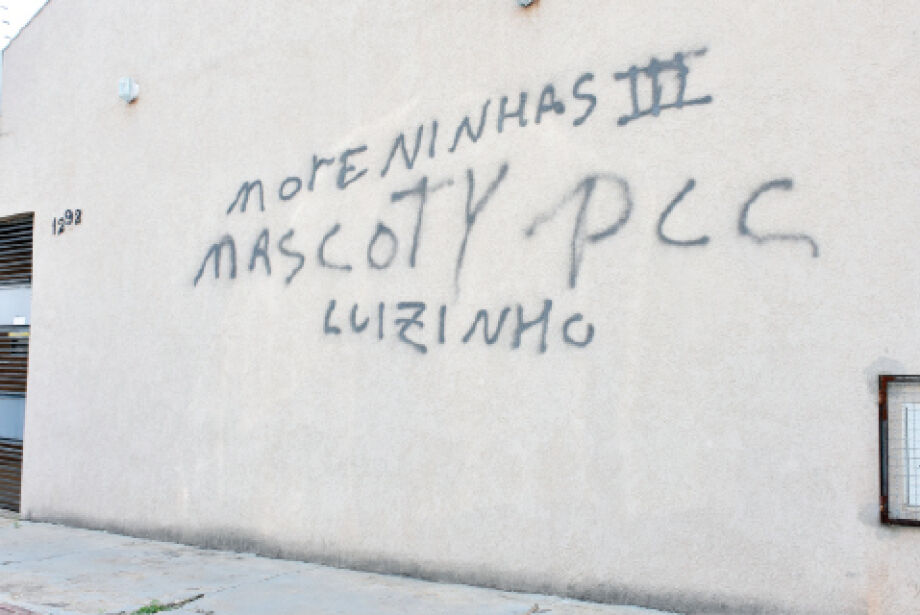 MOrENINHAS III
MASCOTY PCC
LUIZINHO
1298